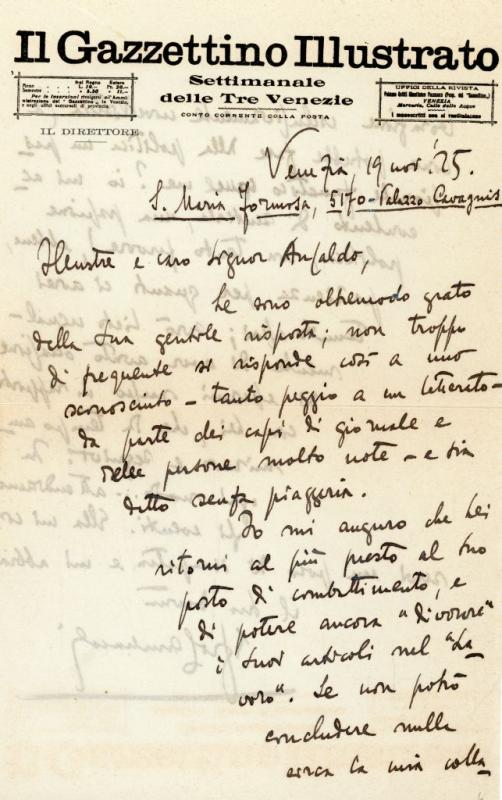 Il Gazzettino Illustrato
Settimanale
delle Tre Venezie
CONTO CORRENTE COLLA POSTA
Nel Regno Estero
Anno L. 10.— Fr. 20.—
Semestre » 5.50 » 11.—
Per le inserzioni rivolgersi all'Ammi-
nistrazione del "Gazzettino", in Venezia,
e negli uffici succursali di provincia.
UFFICI DELLA RIVISTA
VENEZIA
Merceria, Calle delle Acque
I manoscritti non si restituiscono
IL DIRETTORE
Venezia, 19 nov. '25.
S. Maria Formosa, 5170 - Palazzo Cavagnis
Illustre e caro Signor Ansaldo,
Le sono oltremodo grato
della Sua gentile risposta; non troppo
di frequente si risponde così a uno
sconosciuto – tanto peggio a un letterato –
da parte dei capi di giornale e
delle persone molto note – e sia
detto senza piaggeria.
Io mi auguro che Lei
ritorni al più presto al Suo
posto di combattimento, e
di potere ancora "divorare"
i Suoi articoli nel "La-
voro". Se non potrò
concludere nulla
circa la mia colla-